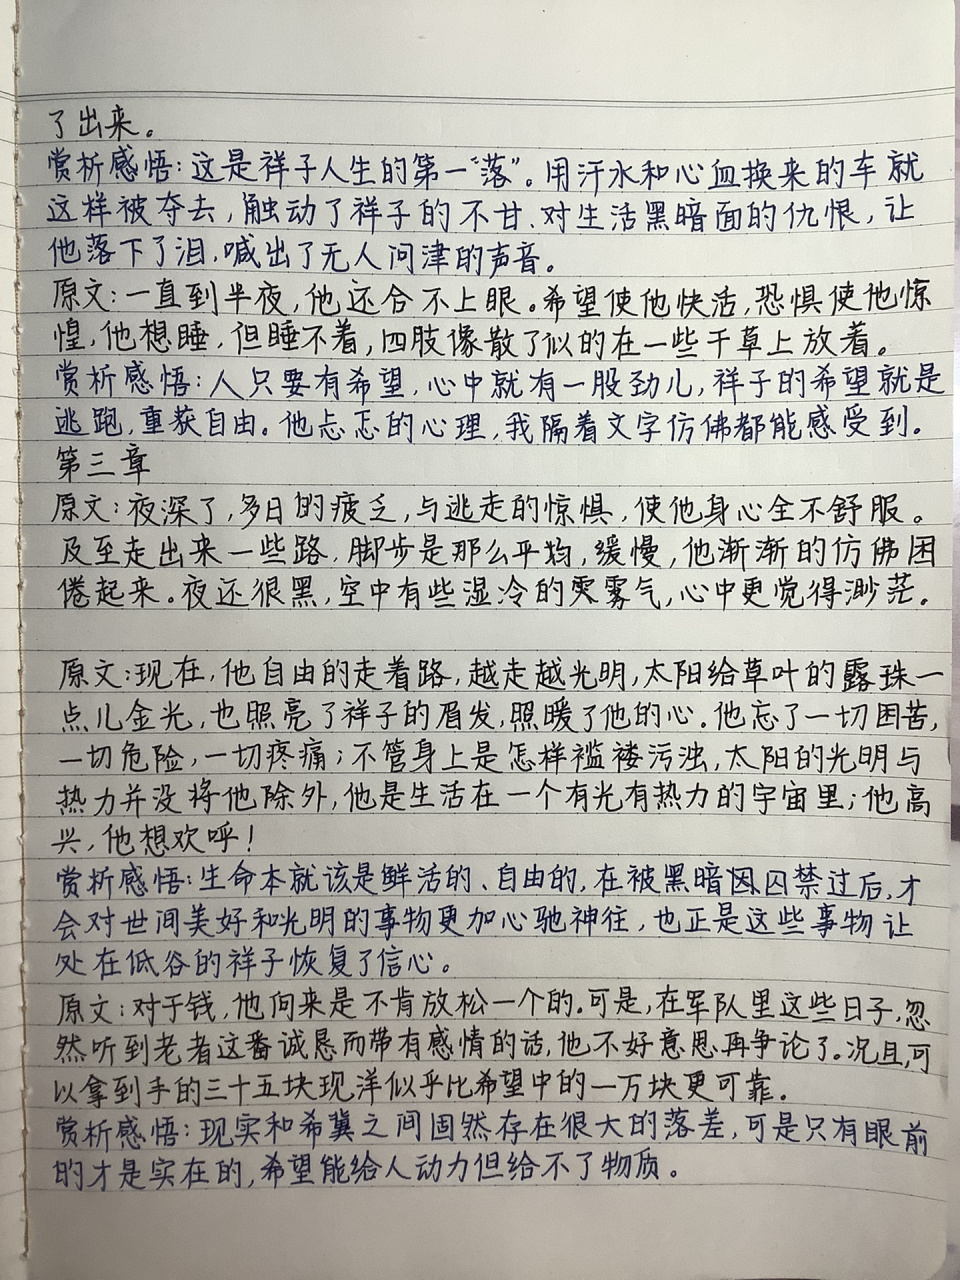 了出来。
赏析感悟：这是祥子人生的第一“落”。用汗水和心血换来的车就
这样被夺去，触动了祥子的不甘、对生活黑暗面的仇恨，让
他落下了泪，喊出了无人问津的声音。
原文：一直到半夜，他还合不上眼。希望使他快活，恐惧使他惊
惶，他想睡，但睡不着，四肢像散了似的在一些干草上放着。
赏析感悟：人只要有希望，心中就有一股劲儿，祥子的希望就是
逃跑，重获自由。他忐忑的心理，我隔着文字仿佛都能感受到。
第三章
原文：夜深了，多日的疲乏，与逃走的惊惧，使他身心全不舒服。
及至走出来一些路，脚步是那么平均，缓慢，他渐渐的仿佛困
倦起来。夜还很黑，空中有些湿冷的雾气，心中更觉得渺茫。
原文：现在，他自由的走着路，越走越光明，太阳给草叶的露珠一
点儿金光，也照亮了祥子的眉发，照暖了他的心。他忘了一切困苦，
一切危险，一切疼痛；不管身上是怎样褴褛污浊，太阳的光明与
热力并没将他除外，他是生活在一个有光有热力的宇宙里；他高
兴，他想欢呼！
赏析感悟：生命本就该是鲜活的、自由的，在被黑暗囚禁过后，才
会对世间美好和光明的事物更加心驰神往，也正是这些事物让
处在低谷的祥子恢复了信心。
原文：对于钱，他向来是不肯放松一个的。可是，在军队里这些日子，忽
然听到老者这番诚恳而带有感情的话，他不好意思再争论了。况且，可
以拿到手的三十五块现洋似乎比希望中的一万块更可靠。
赏析感悟：现实和希冀之间固然存在很大的落差，可是只有眼前
的才是实在的，希望能给人动力但给不了物质。